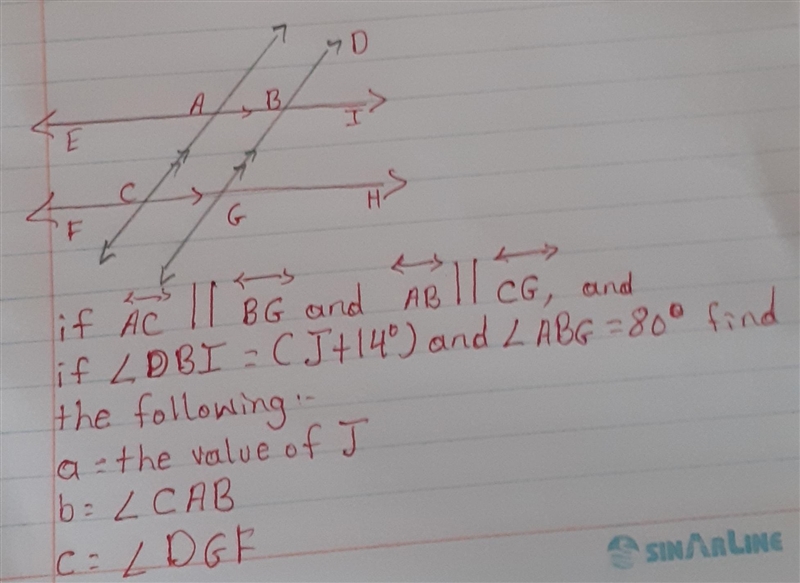 D
A B
E I
C
F G H
if AC || BG and AB || CG, and
if ∠DBI = (J+14°) and ∠ABG = 80° find
the following:-
a = the value of J
b = ∠CAB
c = ∠DGF
SINARLINE